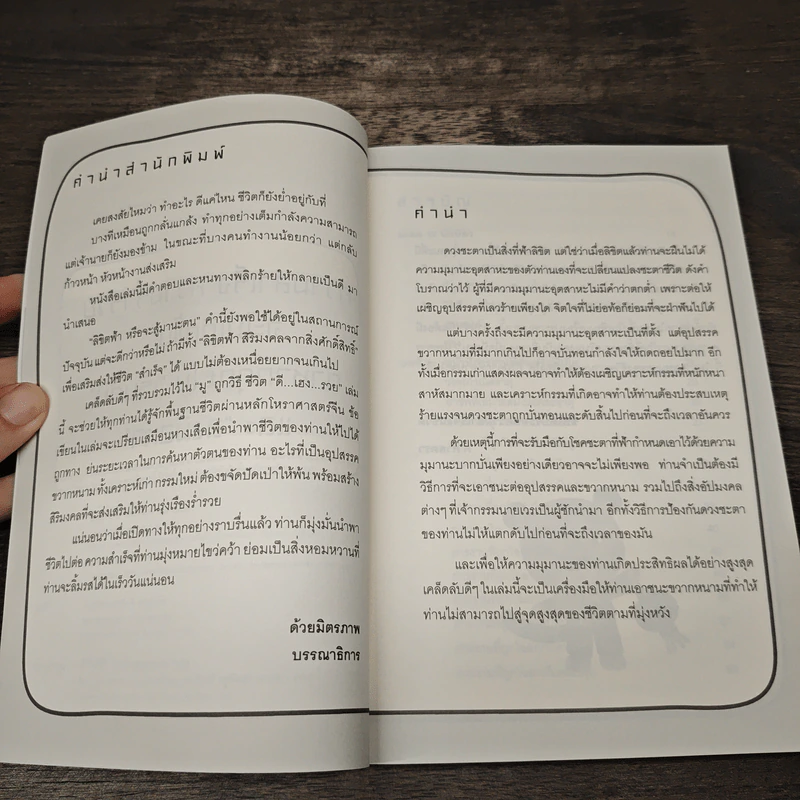 คำนำสำนักพิมพ์
เคยสงสัยไหมว่า ทำอะไร ดีแค่ไหน ชีวิตก็ยังย่ำอยู่กับที่
บางทีเหมือนถูกกลั่นแกล้ง ทำทุกอย่างเต็มกำลังความสามารถ
แต่เจ้านายก็ยังมองข้าม ในขณะที่บางคนทำงานน้อยกว่า แต่กลับ
ก้าวหน้า หัวหน้างานส่งเสริม
หนังสือเล่มนี้มีคำตอบและหนทางพลิกร้ายให้กลายเป็นดี มา
นำเสนอ
“ลิขิตฟ้า หรือจะสู้มานะตน” คำนี้ยังพอใช้ได้อยู่ในสถานการณ์
ปัจจุบัน แต่จะดีกว่าหรือไม่ ถ้ามีทั้ง “ลิขิตฟ้า สิริมงคลจากสิ่งศักดิ์สิทธิ์”
เพื่อเสริมส่งให้ชีวิต “สำเร็จ” ได้ แบบไม่ต้องเหนื่อยยากจนเกินไป
เคล็ดลับดีๆ ที่รวบรวมไว้ใน “มู” ถูกวิธี ชีวิต “ดี...เฮง...รวย” เล่ม
นี้ จะช่วยให้ทุกท่านได้รู้จักพื้นฐานชีวิตผ่านหลักโหราศาสตร์จีน ข้อ
เขียนในเล่มจะเปรียบเสมือนหางเสือเพื่อนำพาชีวิตของท่านให้ไปได้
ถูกทาง ย่นระยะเวลาในการค้นหาตัวตนของท่าน อะไรที่เป็นอุปสรรค
ขวากหนาม ทั้งเคราะห์เก่า กรรมใหม่ ต้องขจัดปัดเป่าให้พ้น พร้อมสร้าง
สิริมงคลที่จะส่งเสริมให้ท่านรุ่งเรืองร่ำรวย
แน่นอนว่าเมื่อเปิดทางให้ทุกอย่างราบรื่นแล้ว ท่านก็มุ่งมั่นนำพา
ชีวิตไปต่อ ความสำเร็จที่ท่านมุ่งหมายไขว่คว้า ย่อมเป็นสิ่งหอมหวานที่
ท่านจะลิ้มรสได้ในเร็ววันแน่นอน
ด้วยมิตรภาพ
บรรณาธิการ
คำนำ
ดวงชะตาเป็นสิ่งที่ฟ้าลิขิต แต่ใช่ว่าเมื่อลิขิตแล้วท่านจะฝืนไม่ได้
ความมุมานะอุตสาหะของตัวท่านเองที่จะเปลี่ยนแปลงชะตาชีวิต ดังคำ
โบราณว่าไว้ ผู้ที่มีความมุมานะอุตสาหะไม่มีคำว่าตกต่ำ เพราะต่อให้
เผชิญอุปสรรคที่เลวร้ายเพียงใด จิตใจที่ไม่ย่อท้อก็ย่อมที่จะฝ่าฟันไปได้
แต่บางครั้งถึงจะมีความมุมานะอุตสาหะเป็นที่ตั้ง แต่อุปสรรค
ขวากหนามที่มีมากเกินไปก็อาจบั่นทอนกำลังใจให้ถดถอยไปมาก อีก
ทั้งเมื่อกรรมเก่าแสดงผลจนอาจทำให้ต้องเผชิญเคราะห์กรรมที่หนักหนา
สาหัสมากมาย และเคราะห์กรรมที่เกิดอาจทำให้ท่านต้องประสบเหตุ
ร้ายแรงจนดวงชะตาถูกบั่นทอนและดับสิ้นไปก่อนที่จะถึงเวลาอันควร
ด้วยเหตุนี้การที่จะรับมือกับโชคชะตาที่ฟ้ากำหนดเอาไว้ด้วยความ
มุมานะบากบั่นเพียงอย่างเดียวอาจจะไม่เพียงพอ ท่านจำเป็นต้องมี
วิธีการที่จะเอาชนะต่ออุปสรรคและขวากหนาม รวมไปถึงสิ่งอัปมงคล
ต่างๆ ที่เจ้ากรรมนายเวรเป็นผู้ชักนำมา อีกทั้งวิธีการป้องกันดวงชะตา
ของท่านไม่ให้แตกดับไปก่อนที่จะถึงเวลาของมัน
และเพื่อให้ความมุมานะของท่านเกิดประสิทธิผลได้อย่างสูงสุด
เคล็ดลับดีๆ ในเล่มนี้จะเป็นเครื่องมือให้ท่านเอาชนะขวากหนามที่ทำให้
ท่านไม่สามารถไปสู่จุดสูงสุดของชีวิตตามที่มุ่งหวัง